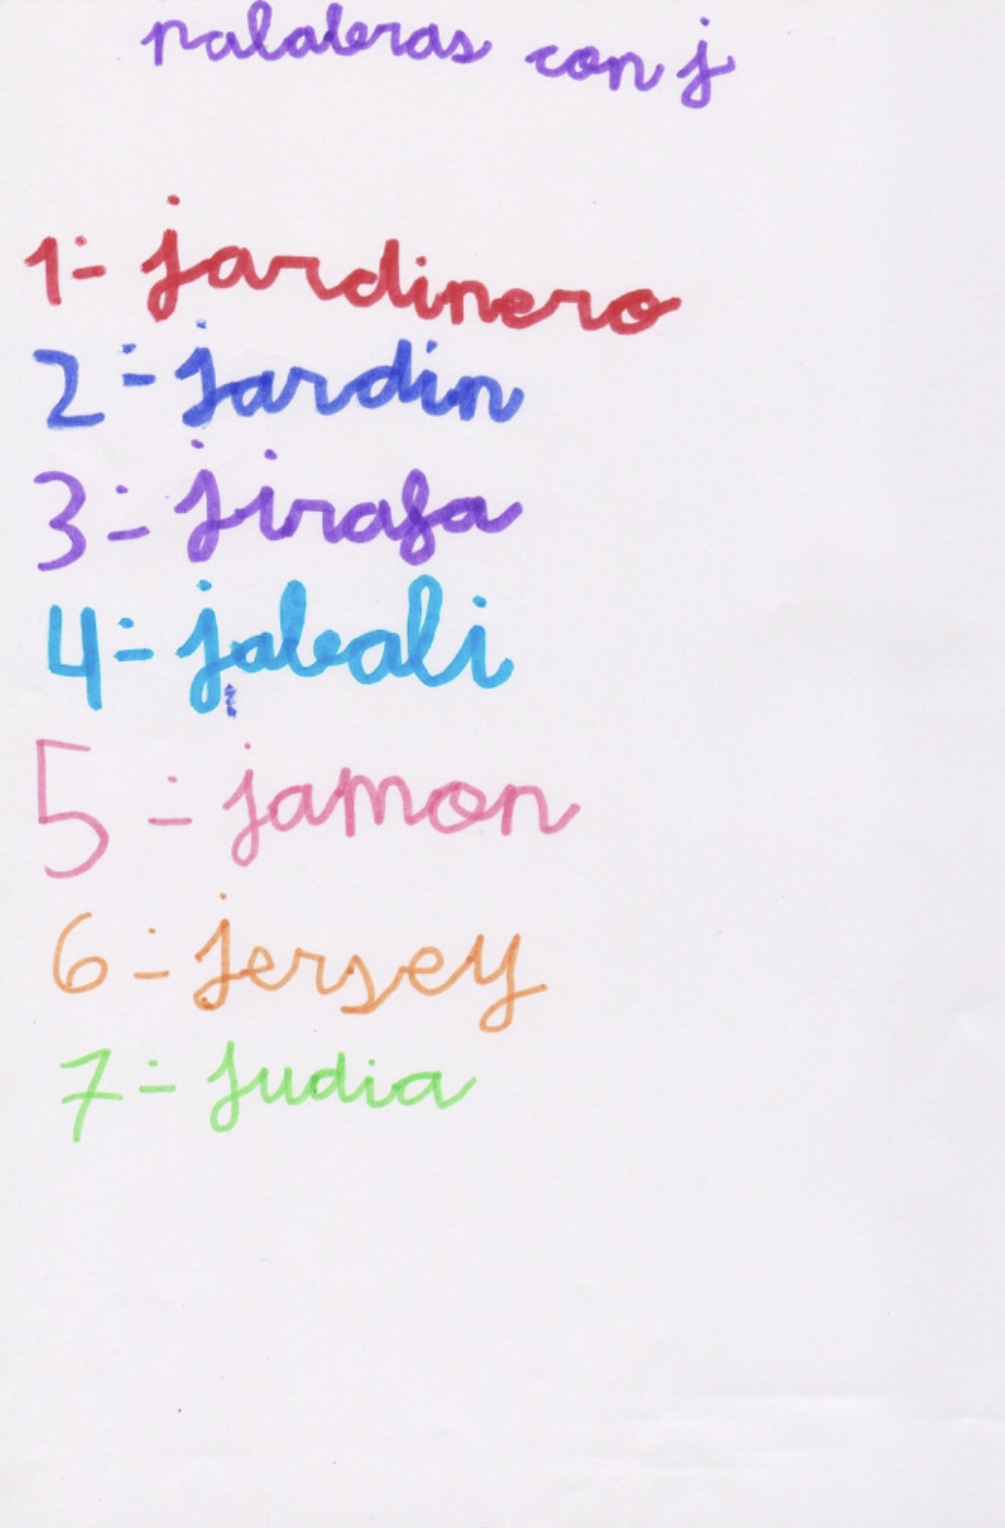 palabras con j
1.- jardinero
2.- jardin
3.- jirafa
4.- jabali
5.- jamon
6.- jersey
7.- judia